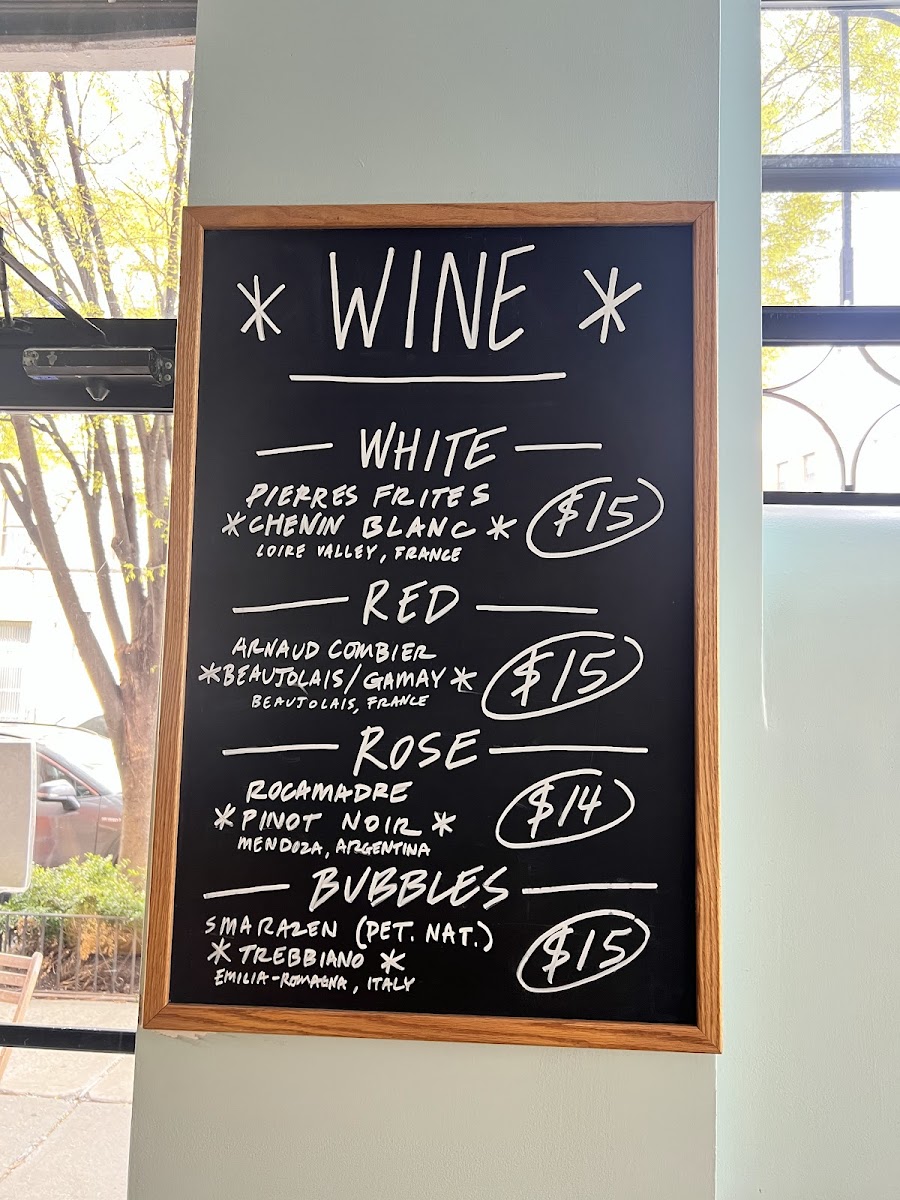 * WINE *
WHITE
PIERRES FRITES
* CHENIN BLANC * $15
LOIRE VALLEY, FRANCE
RED
ARNAUD COMBIER
* BEAUJOLAIS/GAMAY * $15
BEAUJOLAIS, FRANCE
ROSE
ROCAMADRE
* PINOT NOIR * $14
MENDOZA, ARGENTINA
BUBBLES
SMARAZEN (PET. NAT.)
* TREBBIANO * $15
EMILIA-ROMAGNA, ITALY